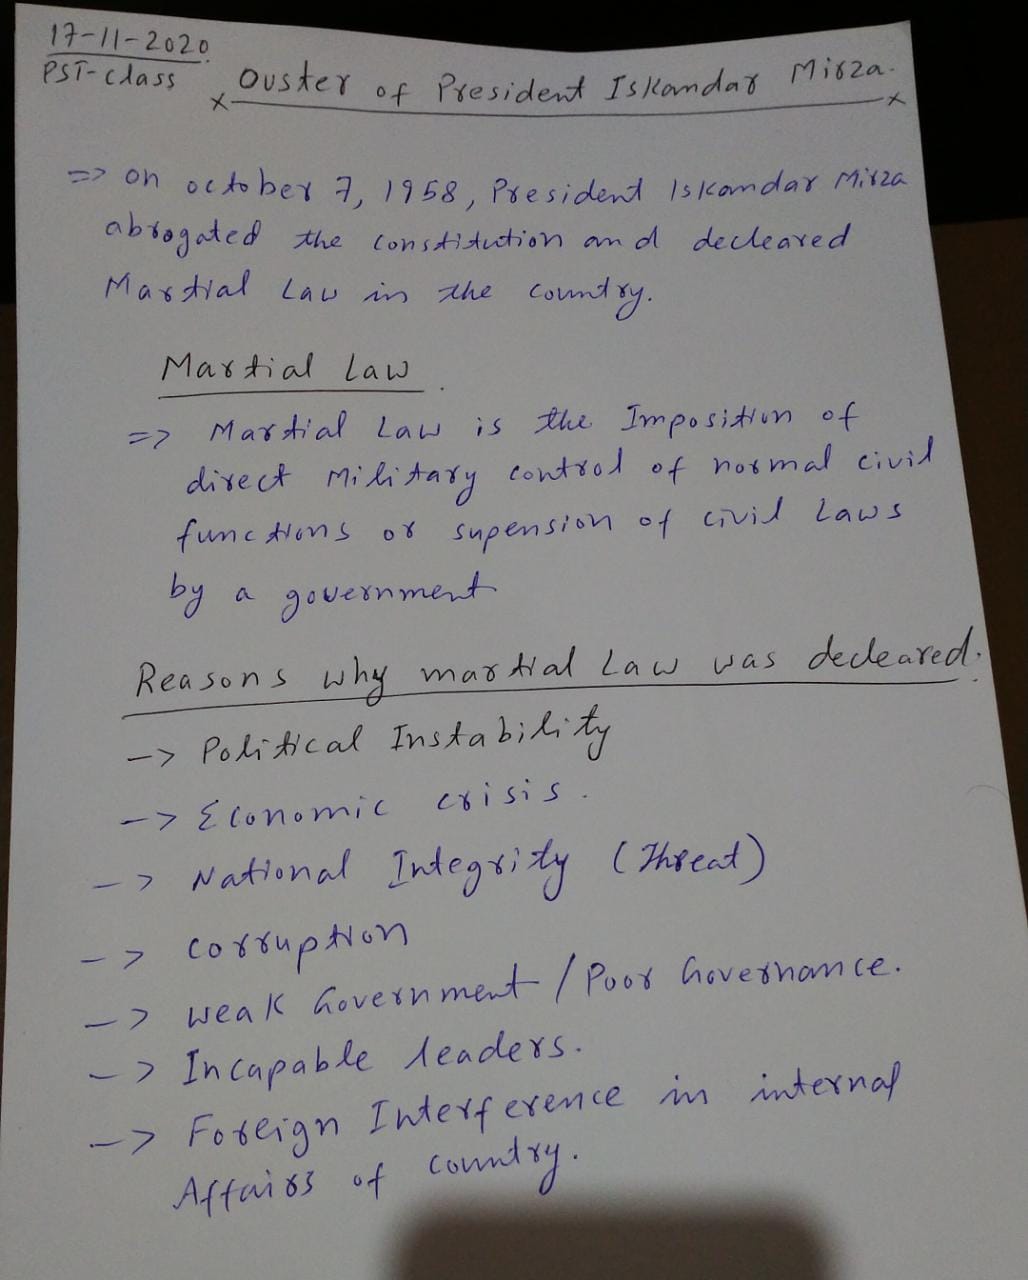 17-11-2020.
PST-class
Ouster of President Iskandar Mirza.
=> on october 7, 1958, President Iskandar Mirza
abrogated the constitution and decleared
Martial Law in the country.
Martial Law.
=> Martial Law is the Imposition of
direct Military control of normal civil
functions or supension of civil Laws
by a government
Reasons why martial Law was decleared.
-> Political Instability
-> Economic crisis.
-> National Integrity (Threat)
-> corruption
-> weak Government / Poor Governance.
-> Incapable leaders.
-> Foreign Interference in internal
Affairs of country.